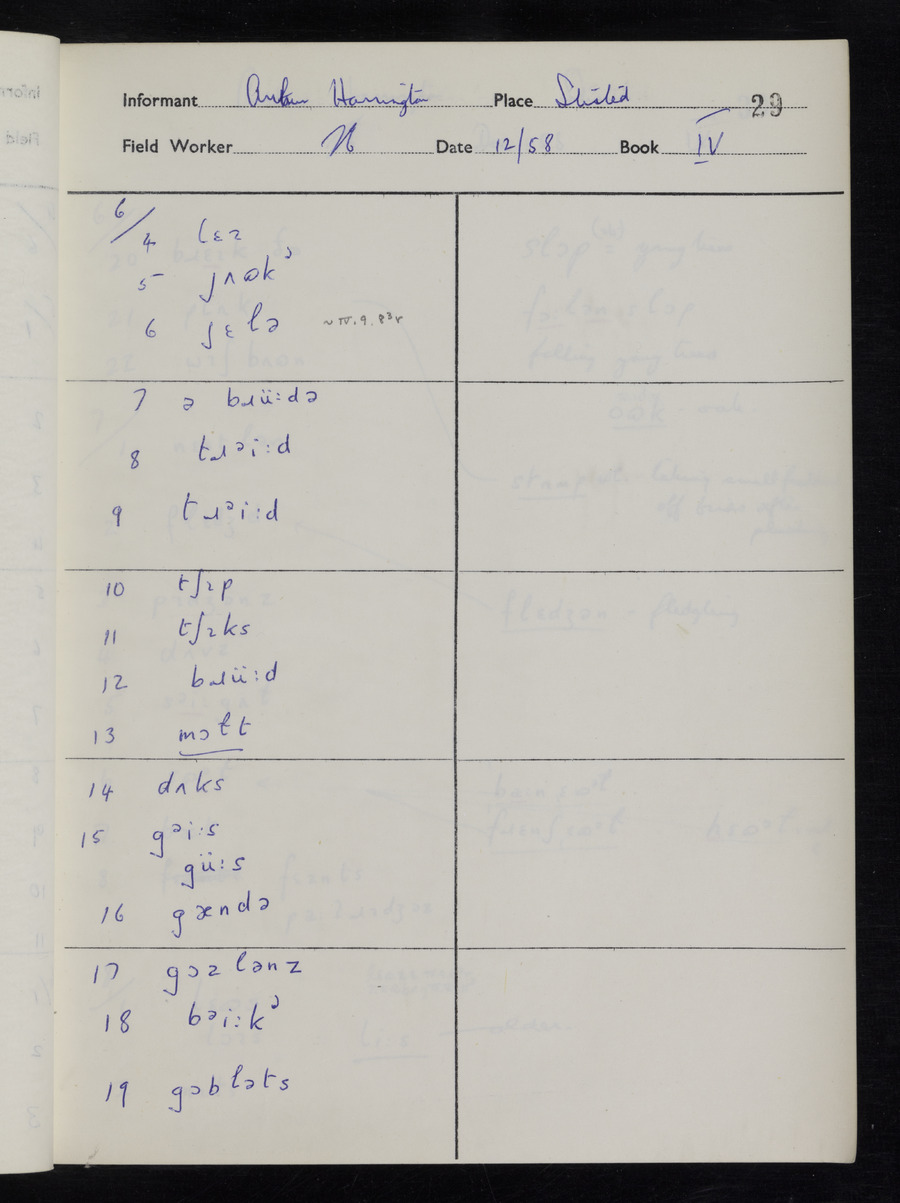 Informant Arthur Harrington Place Stisted 29
Field Worker N Date 12/58 Book IV
6/4 lɛɪ
5 jʌɷkᵊ
6 ʃɛlə ~ IV.9.
7 ə bɹüːdə
8 tɹᵊiːd
9 tɹᵊiːd
10 tʃɪp
11 tʃɪks
12 bɹüːd
13 mɔɫt
14 dʌks
15 gᵊiːs
güːs
16 gændə
17 gɔzlənz
18 bᵊiːkᵊ
19 gɔbləts